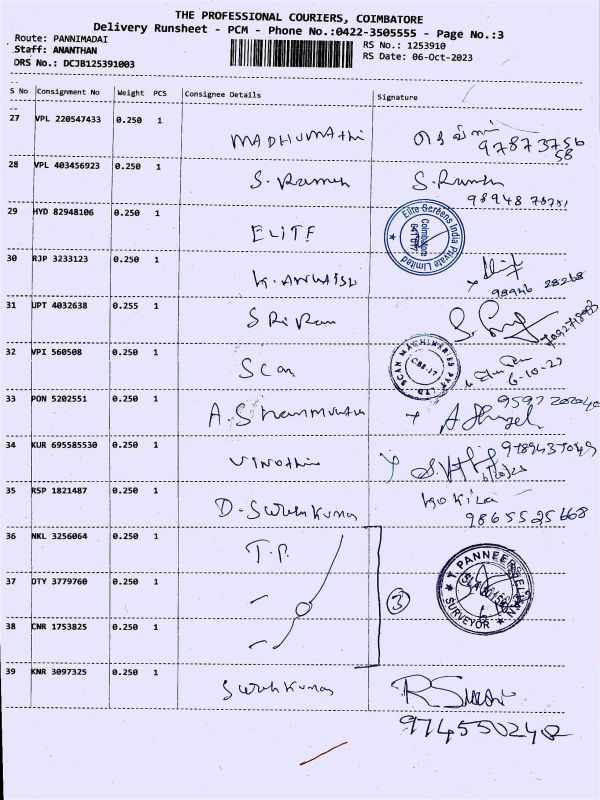 THE PROFESSIONAL COURIERS, COIMBATORE
Delivery Runsheet - PCM - Phone No.:0422-3505555 - Page No.:3
Route: PANNIMADAI
RS No.: 1253910
Staff: ANANTHAN
RS Date: 06-Oct-2023
DRS No.: DCJB125391003
S No Consignment No Weight PCS Consignee Details Signature
27 VPL 220547433 0.250 1 MADHUMAThi
97873756
58
28 VPL 403456923 0.250 1 S. Ramesh S. Ramesh
29 HYD 82948106 0.250 1 ELITE
Elite Screens India Private Limited
Coimbatore
641 017
30 RJP 3233123 0.250 1
98946 28268
31 UPT 4032638 0.255 1 SRi Ram
32 VPI 560508 0.250 1 Scan
SCAN MACHINERIES PVT LTD
CBE-17
6-10-23
33 PON 5202551 0.250 1 A. Shanmugam
34 KUR 695585530 0.250 1 Vinothini
35 RSP 1821487 0.250 1 D. Sureshkumar Kokila
9865525668
36 NKL 3256064 0.250 1 T.P.
37 OTY 3779760 0.250 1
3
T. PANNEERSELVAM
SURVEYOR
38 CNR 1753825 0.250 1
39 KNR 3097325 0.250 1 Sureshkumar
9745500240